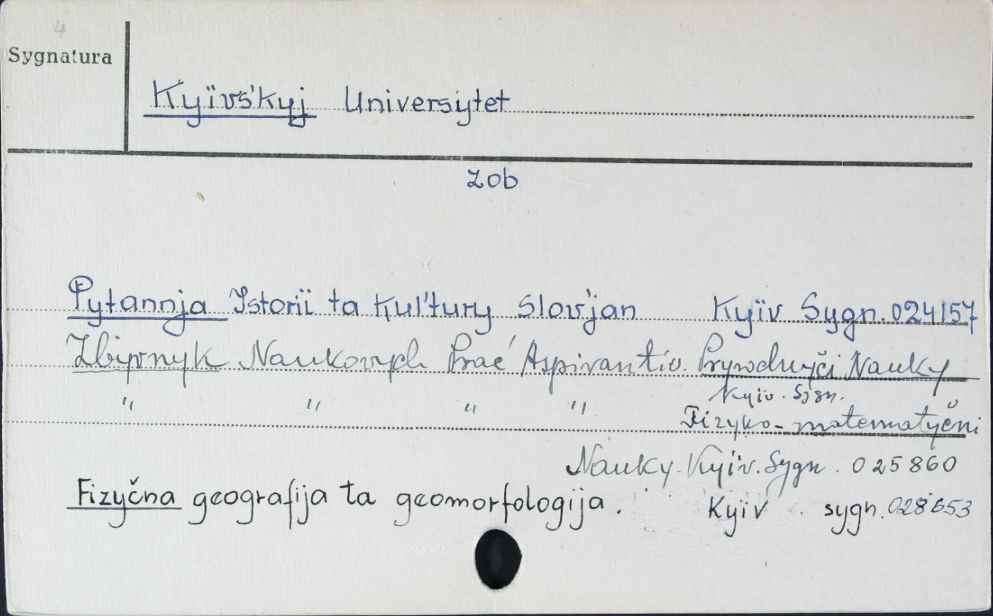 4
Sygnatura
Kyïvśkyj Universytet
Zob
Pytannja Istoriï ta Kul'tury Slov'jan Kyïv Sygn. 024157
Zbirnyk Naukovych Prać Aspirantiv Pryrodnyči Nauky
Kyïv. Sygn.
" " " " Fizyko-matematyčni
Nauky. Kyïv. Sygn. 025860
Fizyčna geografija ta geomorfologija. Kyïv. sygn. 028653